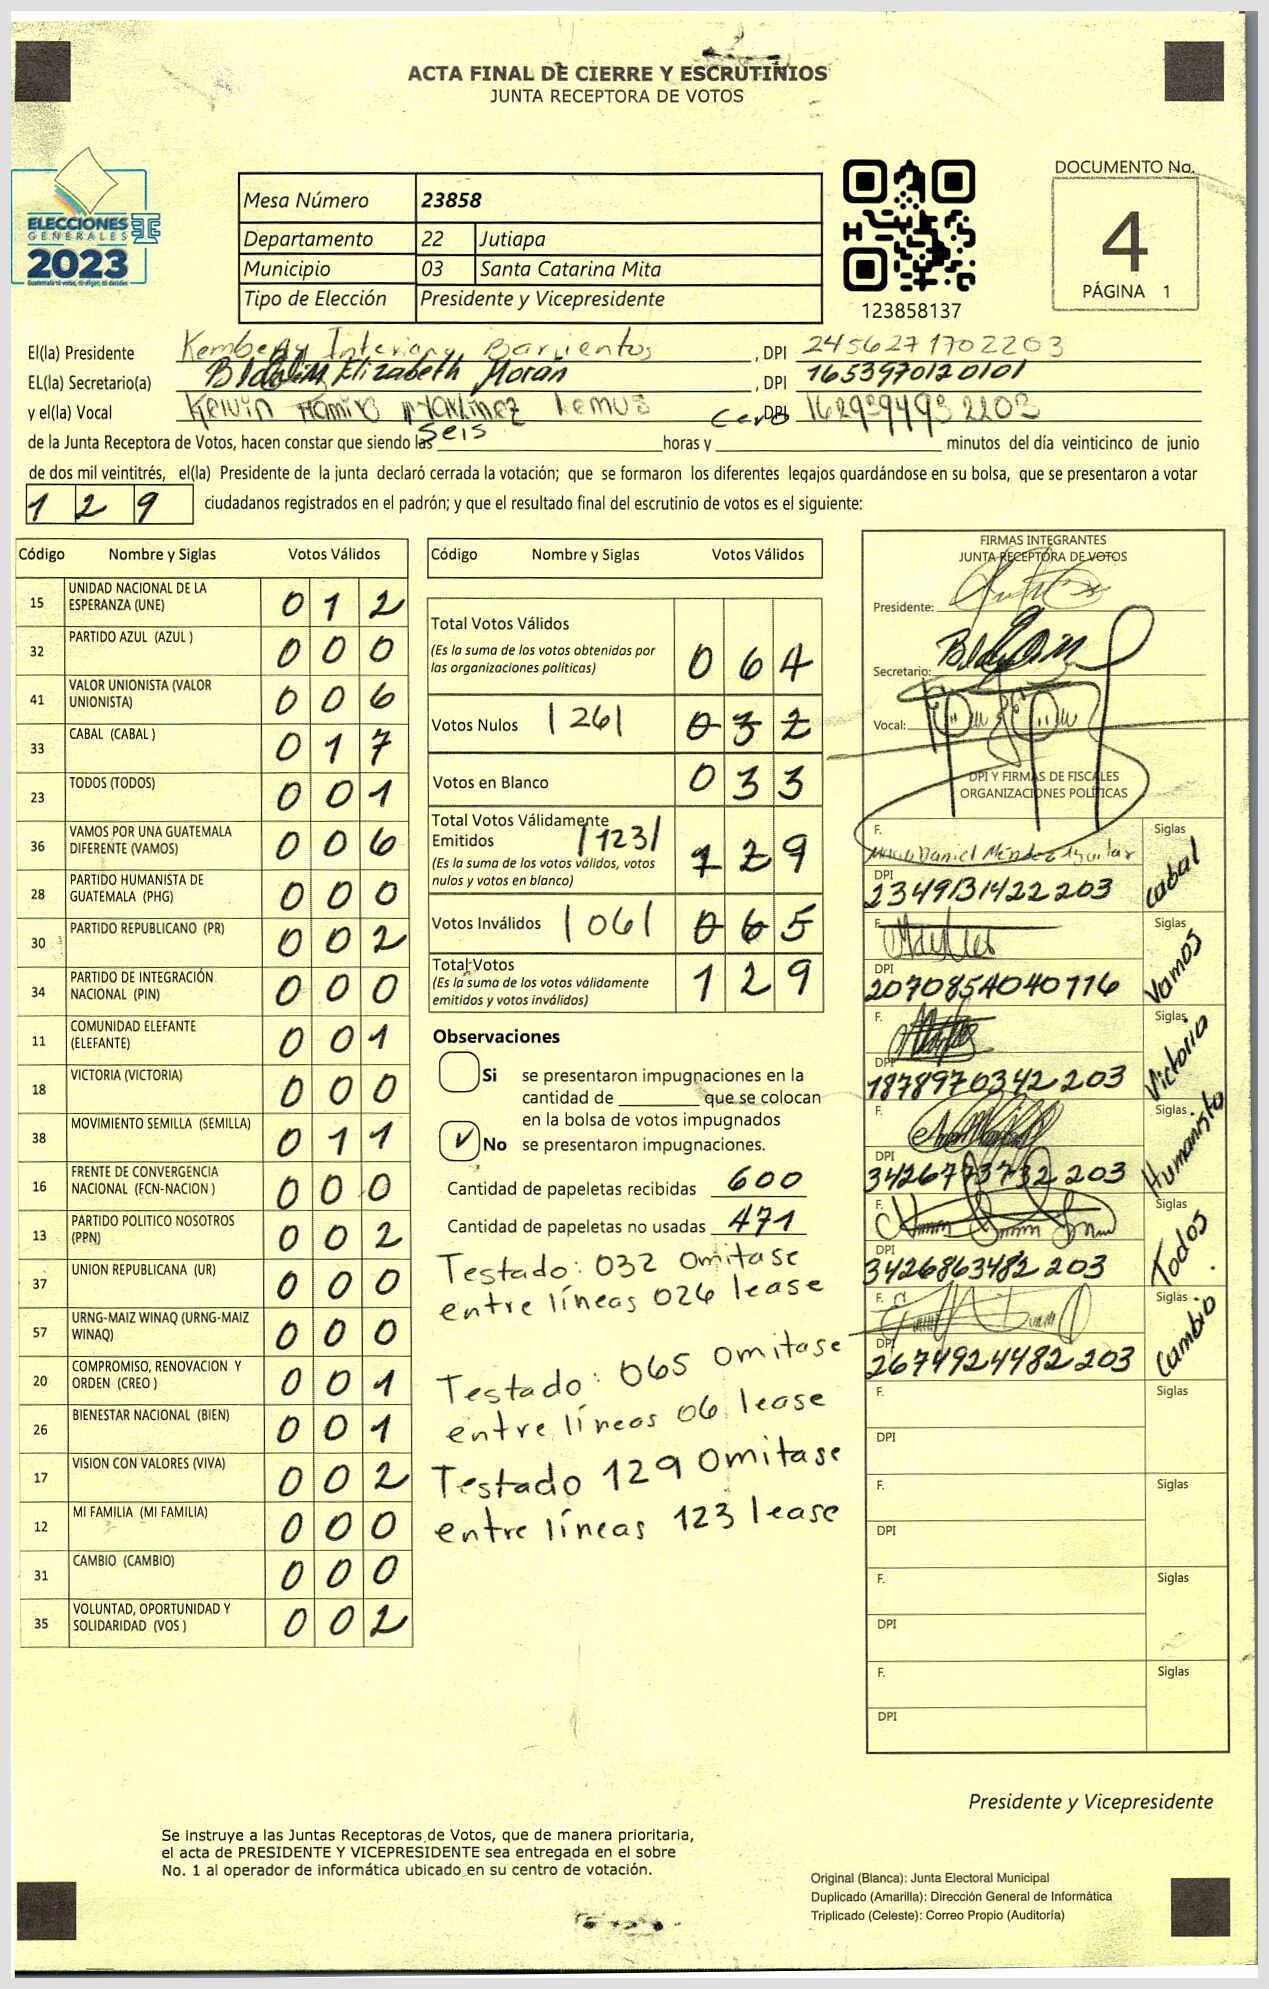 ACTA FINAL DE CIERRE Y ESCRUTINIOS
JUNTA RECEPTORA DE VOTOS
ELECCIONES
GENERALES
2023
Mesa Número 23858
Departamento 22 Jutiapa
Municipio 03 Santa Catarina Mita
Tipo de Elección Presidente y Vicepresidente
123858137
DOCUMENTO No.
4
PÁGINA 1
El(la) Presidente Interiano Barrientos, DPI 2456271702203
EL(la) Secretario(a) Elizabeth Morán, DPI 1653970120101
y el(la) Vocal Kelvin Ramiro Martínez Lemus DPI
de la Junta Receptora de Votos, hacen constar que siendo las Seis horas y Cero minutos del día veinticinco de junio
de dos mil veintitrés, el(la) Presidente de la junta declaró cerrada la votación; que se formaron los diferentes legajos guardándose en su bolsa, que se presentaron a votar
129 ciudadanos registrados en el padrón; y que el resultado final del escrutinio de votos es el siguiente:
Código Nombre y Siglas Votos Válidos
15 UNIDAD NACIONAL DE LA ESPERANZA (UNE) 012
32 PARTIDO AZUL (AZUL ) 000
41 VALOR UNIONISTA (VALOR UNIONISTA) 006
33 CABAL (CABAL ) 017
23 TODOS (TODOS) 001
36 VAMOS POR UNA GUATEMALA DIFERENTE (VAMOS) 006
28 PARTIDO HUMANISTA DE GUATEMALA (PHG) 000
30 PARTIDO REPUBLICANO (PR) 002
34 PARTIDO DE INTEGRACIÓN NACIONAL (PIN) 000
11 COMUNIDAD ELEFANTE (ELEFANTE) 001
18 VICTORIA (VICTORIA) 000
38 MOVIMIENTO SEMILLA (SEMILLA) 011
16 FRENTE DE CONVERGENCIA NACIONAL (FCN-NACION ) 000
13 PARTIDO POLITICO NOSOTROS (PPN) 002
37 UNION REPUBLICANA (UR) 000
57 URNG-MAIZ WINAQ (URNG-MAIZ WINAQ) 000
20 COMPROMISO, RENOVACION Y ORDEN (CREO ) 001
26 BIENESTAR NACIONAL (BIEN) 001
17 VISION CON VALORES (VIVA) 002
12 MI FAMILIA (MI FAMILIA) 000
31 CAMBIO (CAMBIO) 000
35 VOLUNTAD, OPORTUNIDAD Y SOLIDARIDAD (VOS ) 002
Código Nombre y Siglas Votos Válidos
Total Votos Válidos 064
(Es la suma de los votos obtenidos por
las organizaciones políticas)
Votos Nulos |26| 032
Votos en Blanco 033
Total Votos Válidamente
Emitidos |123| 129
(Es la suma de los votos válidos, votos
nulos y votos en blanco)
Votos Inválidos |06| 065
Total Votos 129
(Es la suma de los votos válidamente
emitidos y votos inválidos)
Observaciones
Si se presentaron impugnaciones en la
cantidad de ________ que se colocan
en la bolsa de votos impugnados
✓ No se presentaron impugnaciones.
Cantidad de papeletas recibidas 600
Cantidad de papeletas no usadas 471
Testado: 032 Omitase
entre líneas 026 lease
Testado: 065 Omitase
entre líneas 06 lease
Testado 129 Omitase
entre líneas 123 lease
FIRMAS INTEGRANTES
JUNTA RECEPTORA DE VOTOS
Presidente:
Secretario:
Vocal:
DPI Y FIRMAS DE FISCALES
ORGANIZACIONES POLÍTICAS
F. Daniel Méndez Aguilar Siglas Cabal
DPI 2349131422203
F. Siglas Vamos
DPI 2070854040716
F. Siglas Victoria
DPI 1878970342203
F. Siglas Humanista
DPI 3426773732203
F. Siglas Todos
DPI 3426863482203
F. Siglas Cambio
DPI 2674924482203
F. Siglas
DPI
F. Siglas
DPI
F. Siglas
DPI
F. Siglas
DPI
Presidente y Vicepresidente
Se instruye a las Juntas Receptoras de Votos, que de manera prioritaria,
el acta de PRESIDENTE Y VICEPRESIDENTE sea entregada en el sobre
No. 1 al operador de informática ubicado en su centro de votación.
Original (Blanca): Junta Electoral Municipal
Duplicado (Amarilla): Dirección General de Informática
Triplicado (Celeste): Correo Propio (Auditoría)